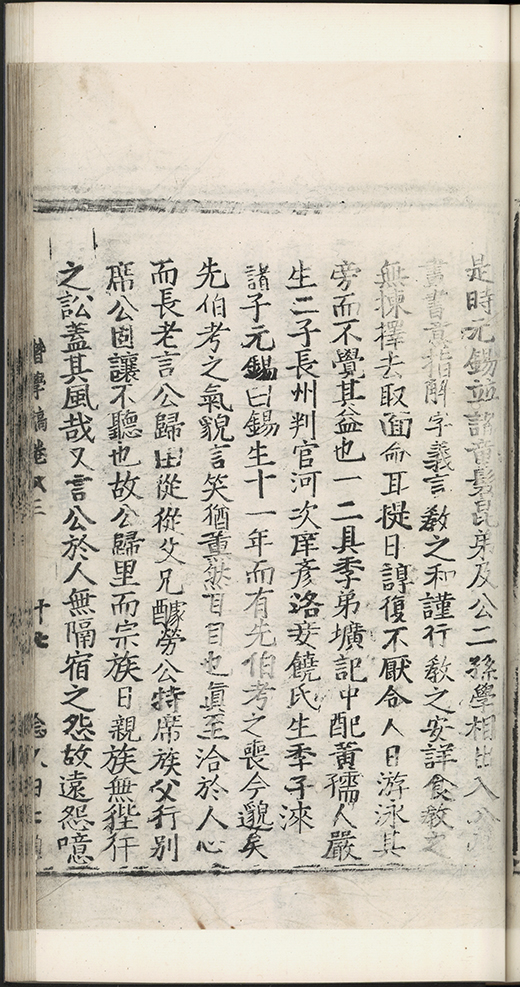 是時元錫並諸童髫昆弟及公二孫學相出入公
畫書意指解字義言教之和謹行教之安詳食教之
無揀擇去取面命耳提日諄復不厭令人日游泳其
旁而不覺其益也一二具季弟壙記中配黃孺人嚴
生二子長州判官河次庠彥洛妾饒氏生季子淶
諸子元錫曰錫生十一年而有先伯考之喪今邈矣
先伯考之氣貌言笑猶薰然耳目也眞至洽於人心
而長老言公歸田從從父兄醵勞公特席族父行別
席公固讓不聽也故公歸里而宗族日親族無狴犴
之訟蓋其風哉又言公於人無隔宿之怨故遠怨噫
潛學稿卷 三
十七